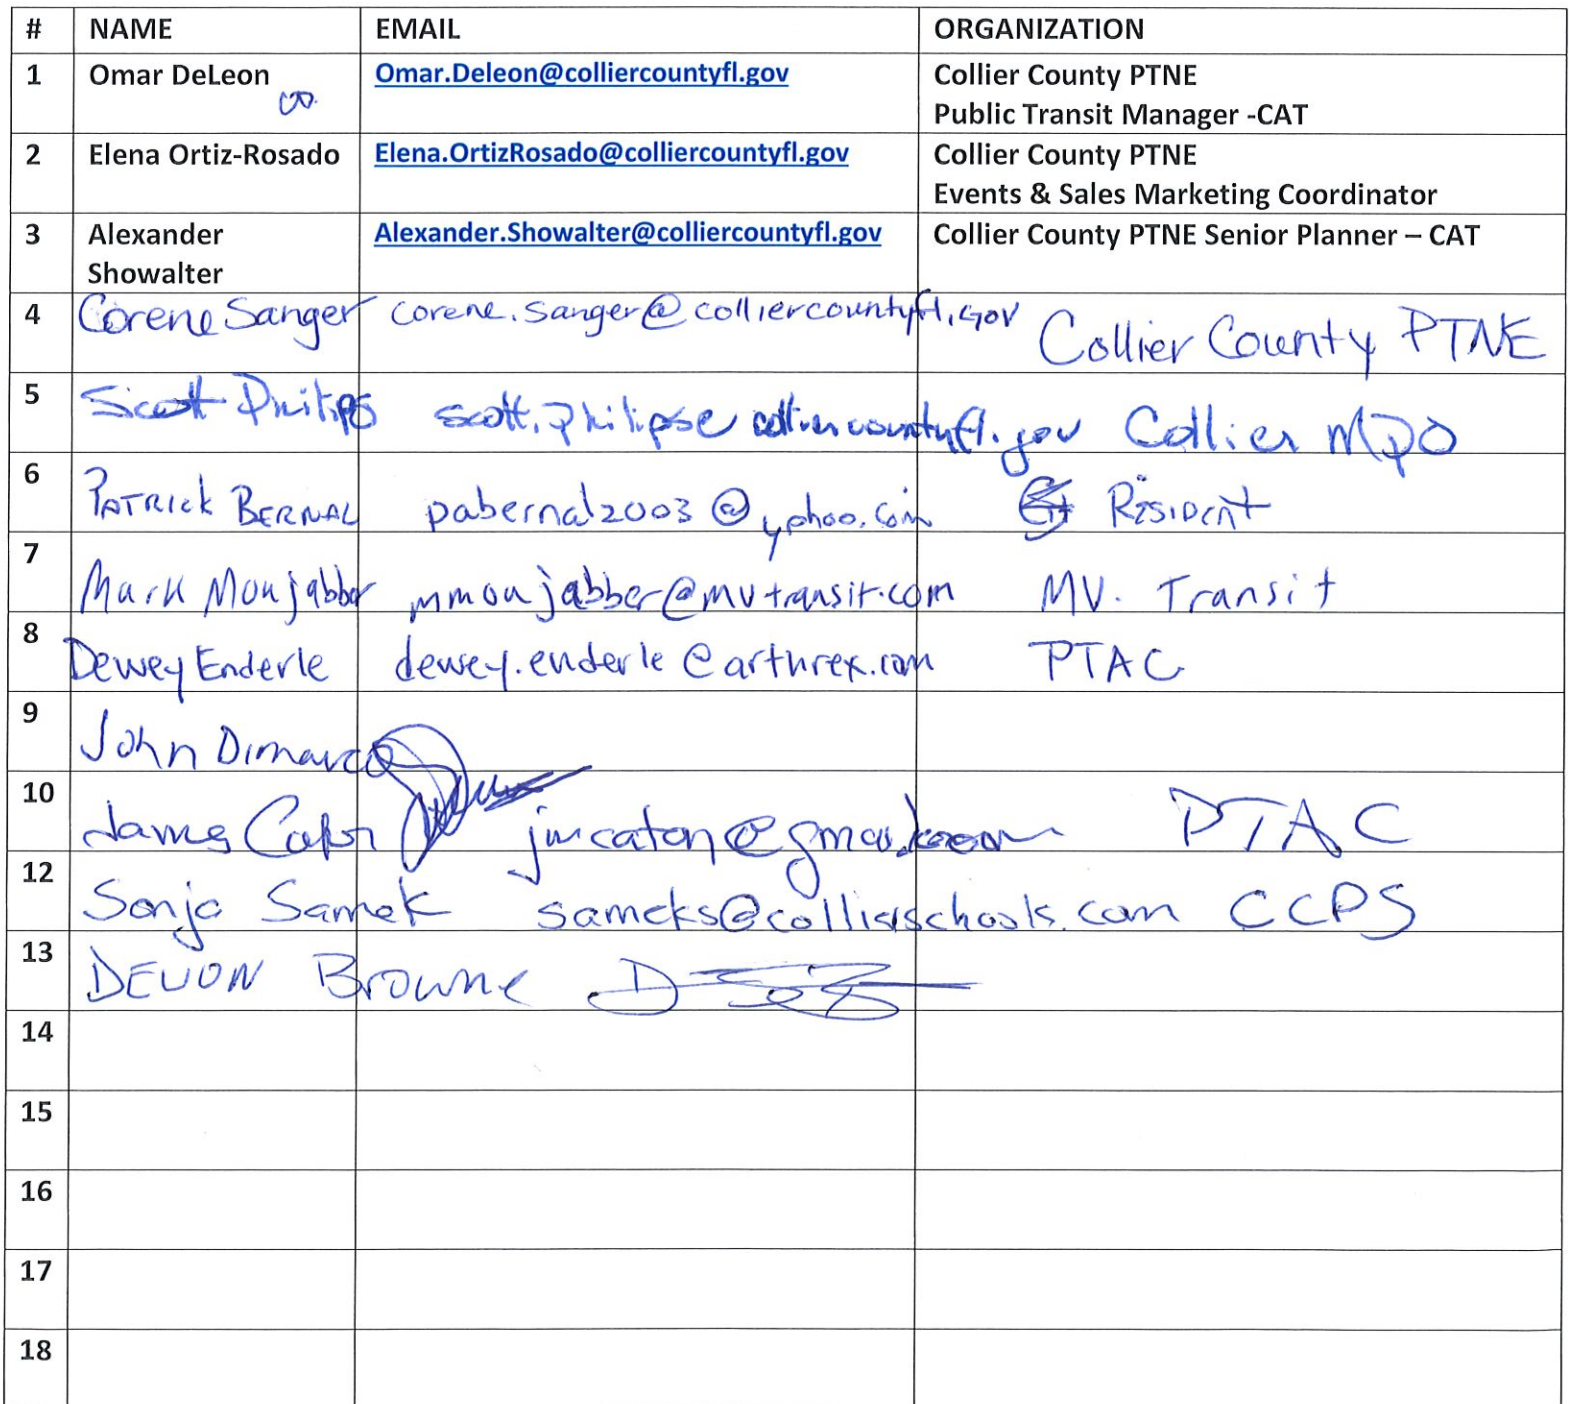 # NAME EMAIL ORGANIZATION
1 Omar DeLeon Omar.Deleon@colliercountyfl.gov Collier County PTNE
Public Transit Manager -CAT
2 Elena Ortiz-Rosado Elena.OrtizRosado@colliercountyfl.gov Collier County PTNE
Events & Sales Marketing Coordinator
3 Alexander Alexander.Showalter@colliercountyfl.gov Collier County PTNE Senior Planner – CAT
Showalter
4 Corene Sanger corene.sanger@colliercountyfl.gov Collier County PTNE
5 Scott Philips scott.philips@colliercountyfl.gov Collier MPO
6 PATRICK BERNAL pabernal2003@yahoo.com Resident
7 Mark Moujabber mmoujabber@mvtransit.com MV. Transit
8 Dewey Enderle dewey.enderle@arthrex.com PTAC
9 John Dimarco
10 James Caton jmcaton@gmail.com PTAC
12 Sonja Samek sameks@collierschools.com CCPS
13 DEVON Browne
14
15
16
17
18